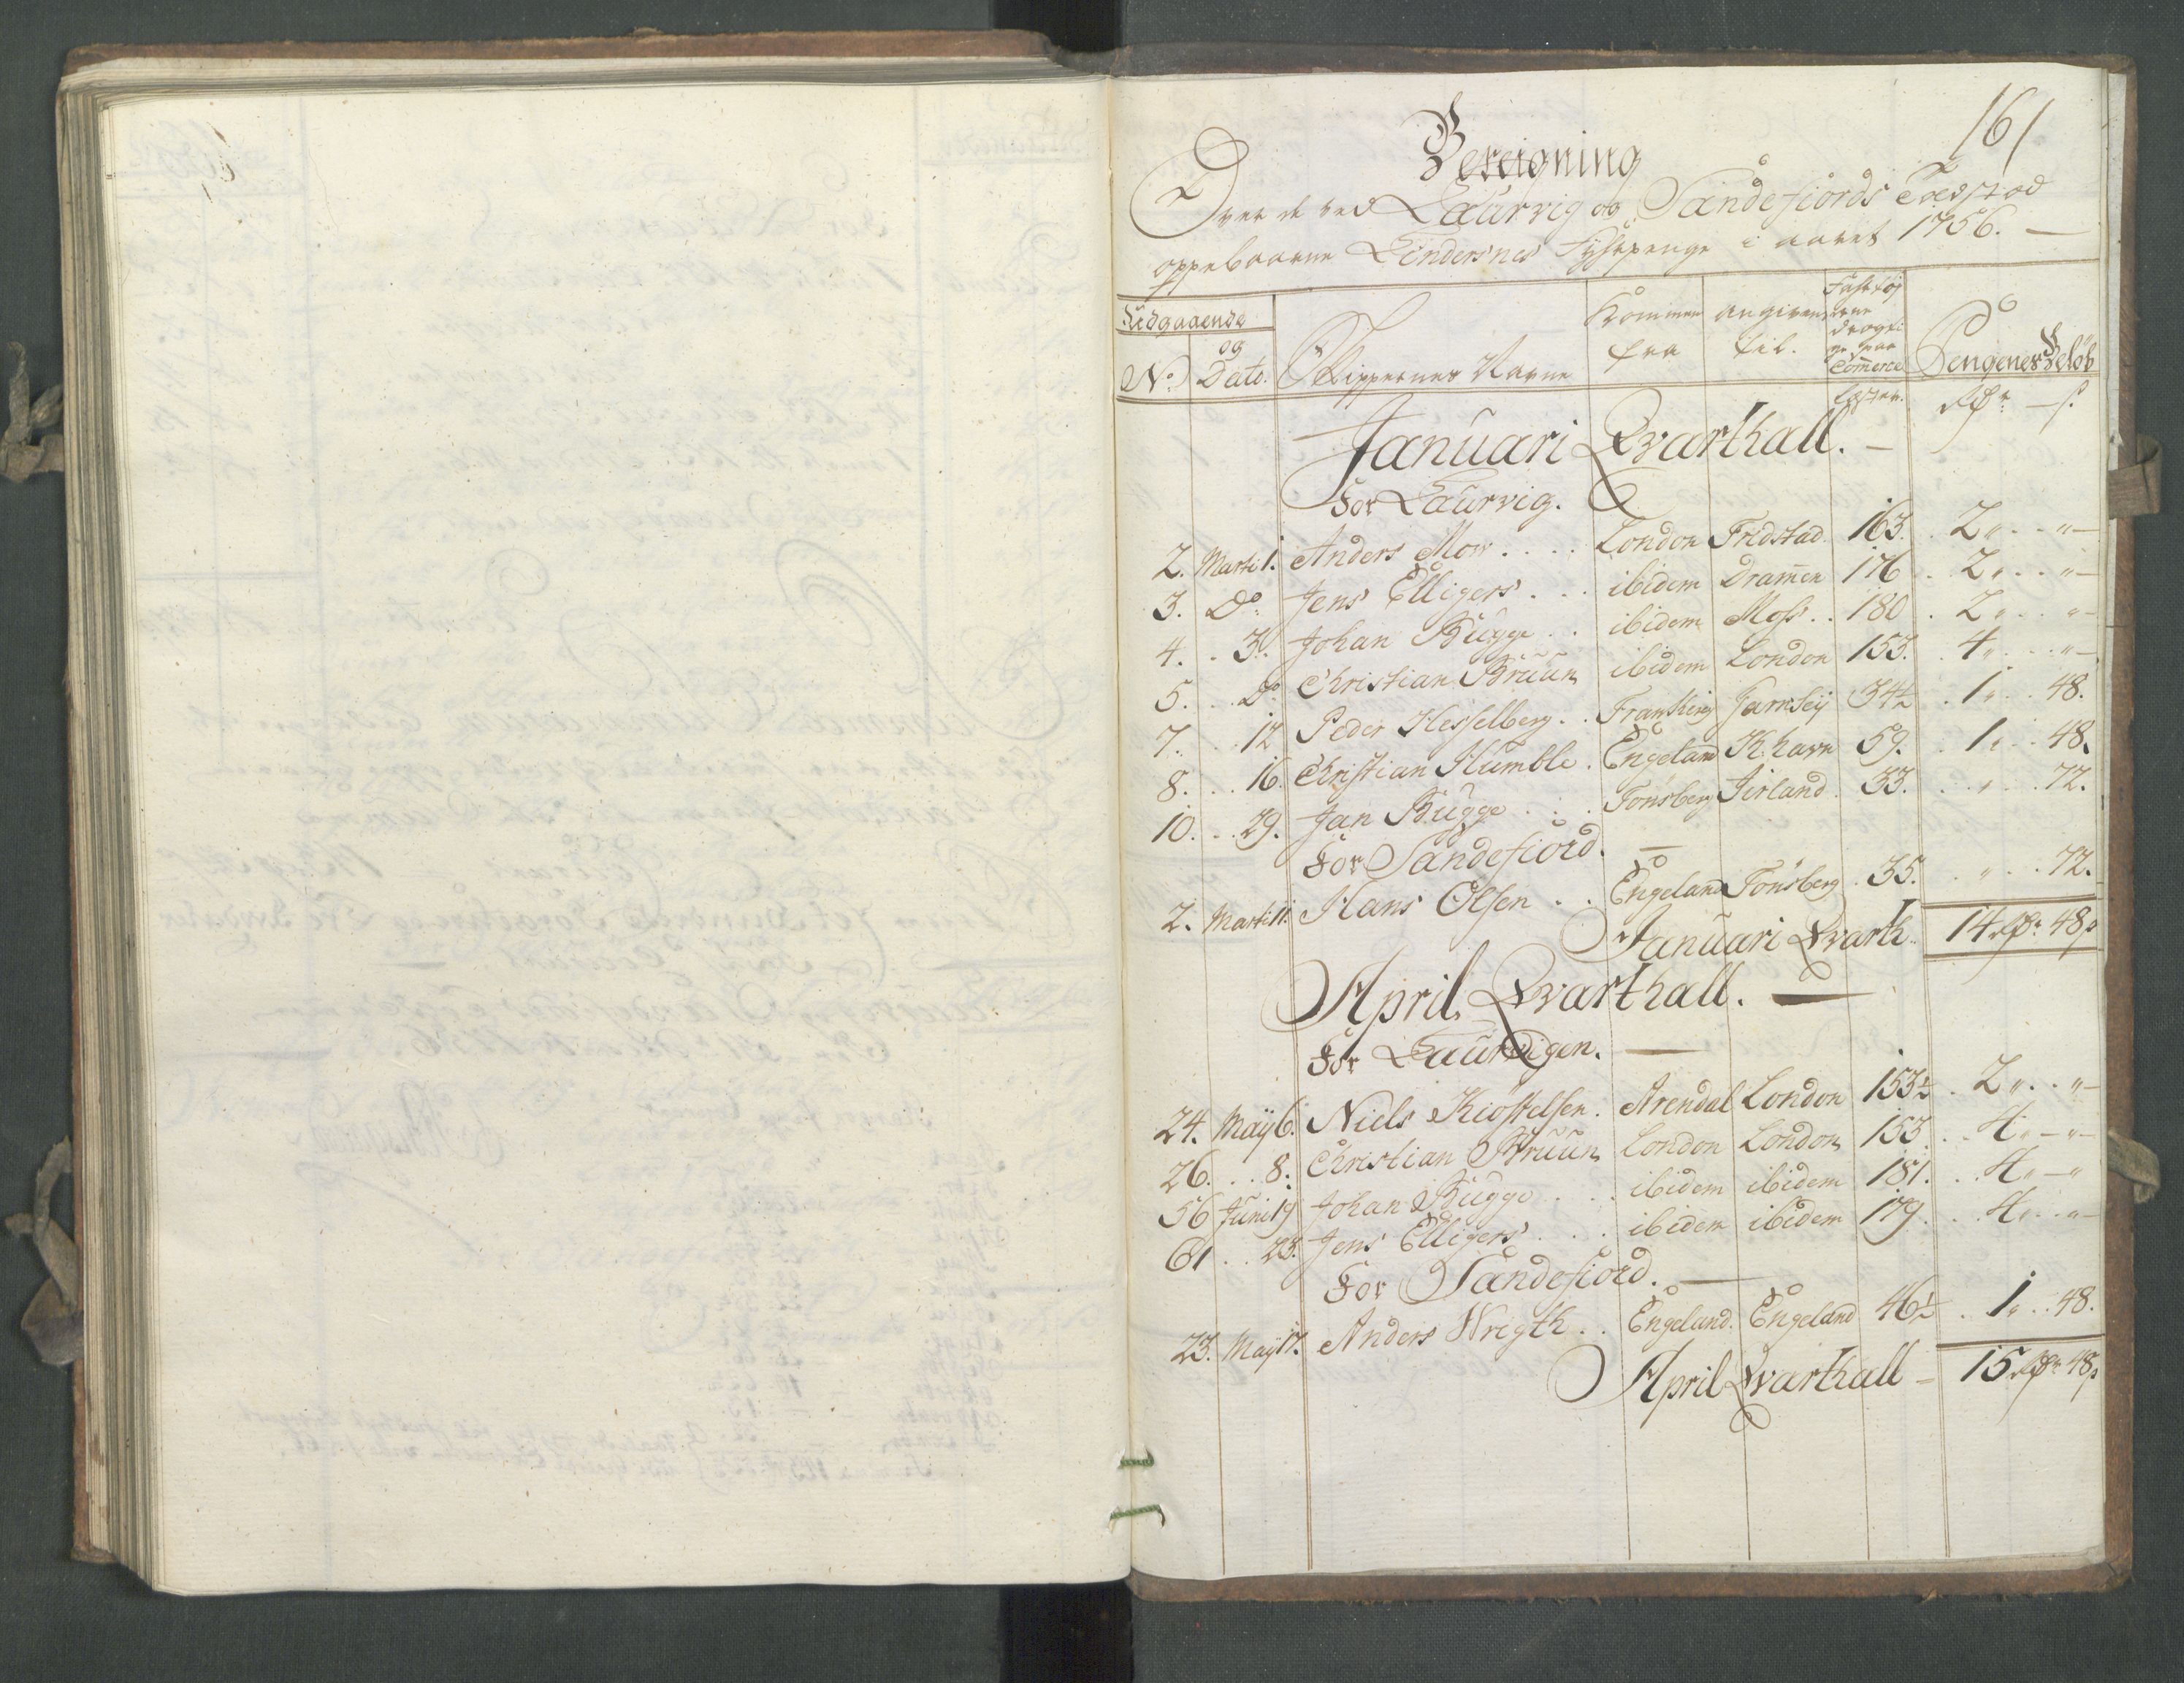 161
Bereigning
Over de ved Laurvig og Sandefiords Toldstad
oppebaarne Lindersnes Fyhrpenge i aaret 1756. —
Udgaaende
No og Dato. Skippernes Navne Kommen fra angiven til. Fartøjernes drægtighed Commerce Læster. Pengenes Beløb
Rdr — s.
Januari Qvarthall. —
For Laurvig.
2. Marti 1. Anders Mow .... London Fridstad. 163. . 2 „ . . „ —
3. Do. Jens Elligers . . . ibidem Dramen 176 . 2 „ . . „ —
4. . 3. Johan Bugge . . ibidem Moss . . 180 . 2 „ . . „ —
5. . . Do Christian Bruun ibidem London 153. . 4 „ . . „ —
7. . . 12 Peder Hesselberg . . Frankerig Garnseÿ 34½ . 1 „ . . 48.
8. . . 16. Christian Humble . Engeland K.havn 59. . 1 „ . . 48.
10. . . 29. Jan Bugge . . . Tønsberg Jirland . 33. . . „ . . 72.
For Sandefiord. —
2. Marti 11. Hans Olsen . . Engeland Tønsberg . 35. . „ . . 72.
Januari Qvarth. 14 Rdr 48 s
April Qvarthall. —
For Laurvigen. —
24. Maÿ 6. Niels Kiøstelsen . Arendal London 153½ . 2 „ . . „ —
26. . . 8. Christian Bruun London London 153 . . 4 „ — „ —
56 Juni 19 Johan Bugge . . . ibidem ibidem 181. . . 4 „ — „
61 . . 23. Jens Elligers . . . ibidem ibidem 179. . . 4 „ . . „ —
For Sandefiord. —
23. Maÿ 17. Anders Wregth . . Engeland. Engeland 46½ . 1 „ . . 48.
April Qvarthall — 15 Rdr 48 s